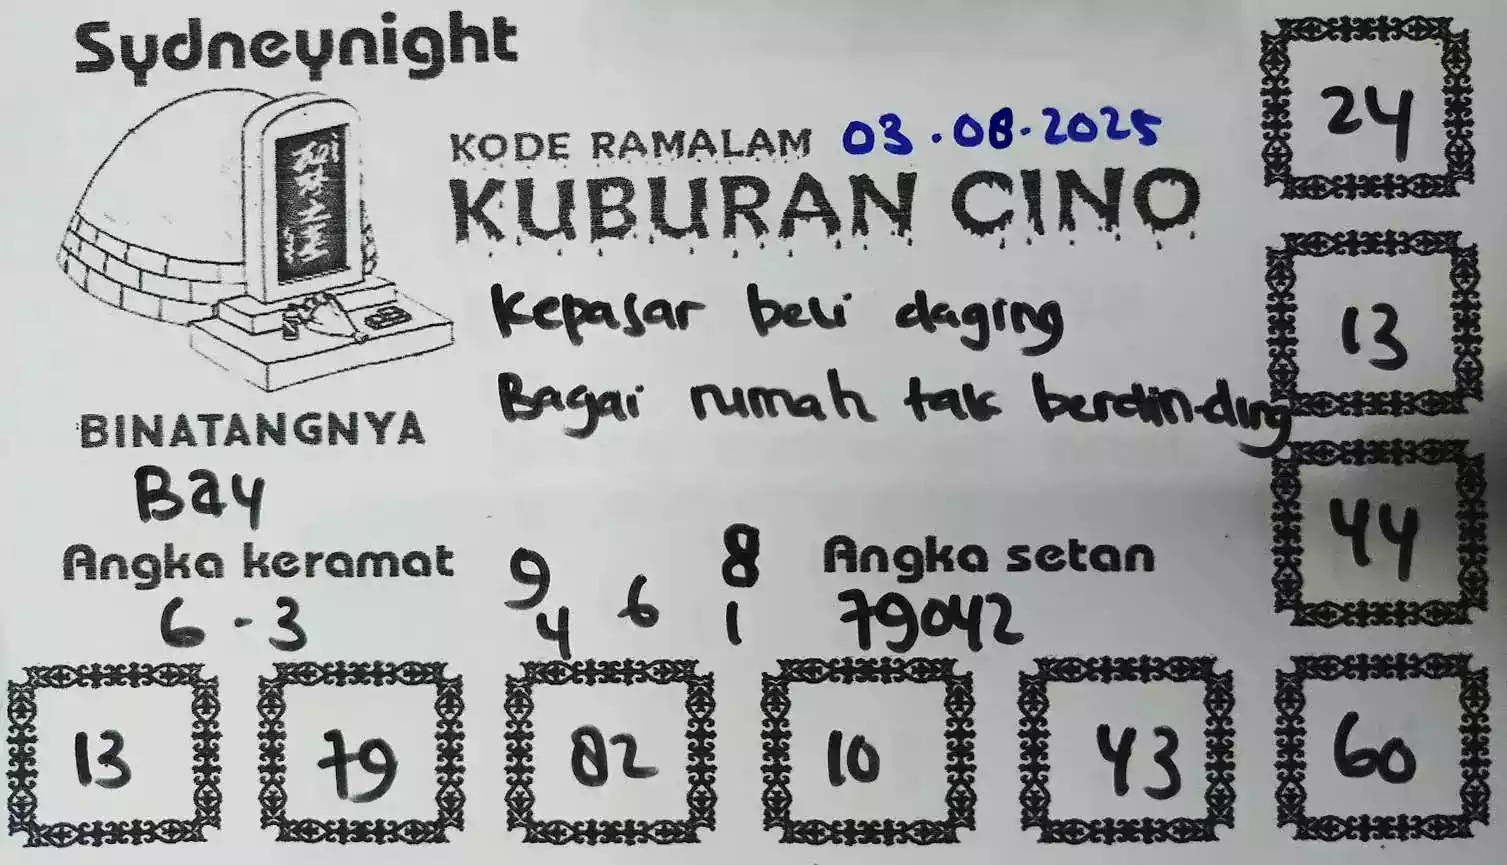 Sydneynight
KODE RAMALAM 03.08.2025
KUBURAN CINO
Kepasar beli daging
Bagai rumah tak berdin-ding
BINATANGNYA
Bay
Angka keramat
6 - 3
9 8
4 6 1
Angka setan
79042
24
13
44
13 79 82 10 43 60